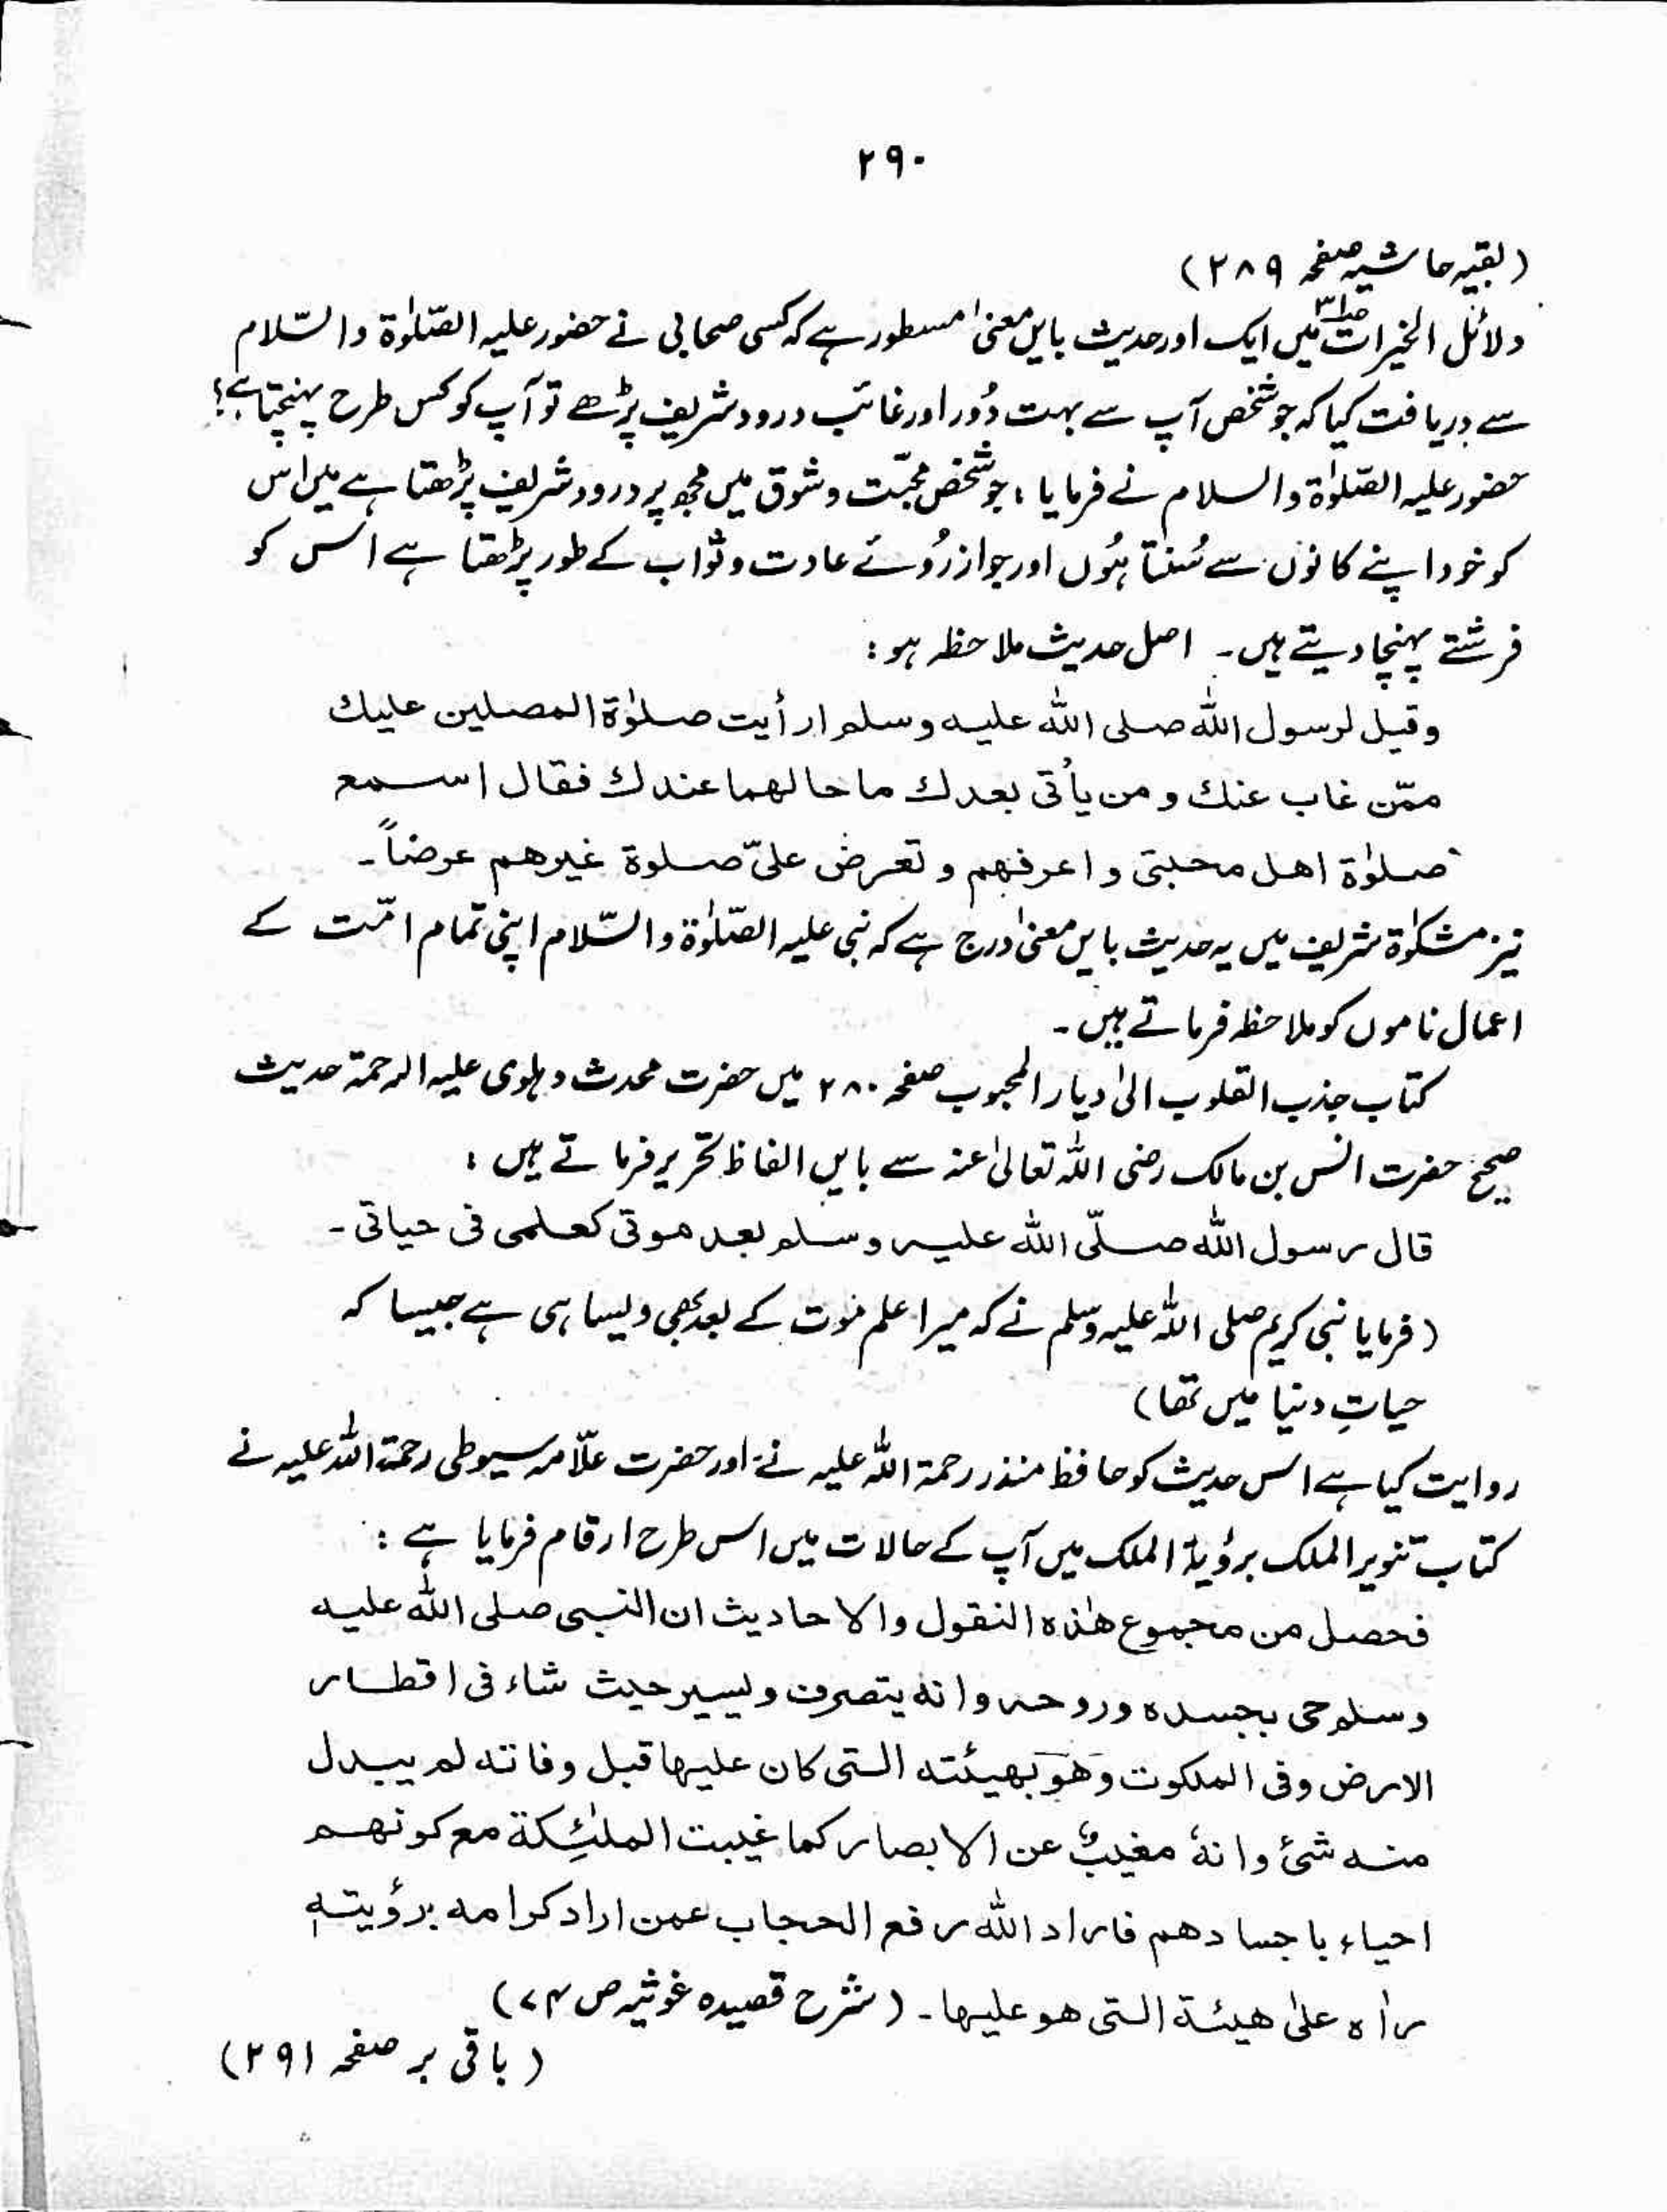 ۲۹۰
(بقیہ حاشیہ صفحہ ۲۸۹)
دلائل الخیرات میں ایک اور حدیث بایں معنیٰ مسطور ہے کہ کسی صحابی نے حضور علیہ الصّلوٰۃ والسّلام
سے دریافت کیا کہ جو شخص آپ سے بہت دُور اور غائب درود شریف پڑھے تو آپ کو کس طرح پہنچتا ہے؟
حضور علیہ الصّلوٰۃ والسلام نے فرمایا، جو شخص محبّت و شوق میں مجھ پر درود شریف پڑھتا ہے میں اس
کو خود اپنے کانوں سے سُنتا ہُوں اور جو ازرُوئے عادت و ثواب کے طور پڑھتا ہے اس کو
فرشتے پہنچا دیتے ہیں۔ اصل حدیث ملاحظہ ہو:
وقیل لرسول اللہ صلی اللہ علیہ وسلم ارأیت صلوٰۃ المصلین علیك
ممّن غاب عنك و من یأتی بعدك ما حالهما عندك فقال اسمع
صلوٰۃ اهل محبتی و اعرفهم و تعرض علیّ صلوۃ غیرهم عرضاً۔
نیز مشکوٰۃ شریف میں یہ حدیث بایں معنیٰ درج ہے کہ نبی علیہ الصّلوٰۃ والسّلام اپنی تمام امّت کے
اعمال ناموں کو ملاحظہ فرماتے ہیں۔
کتاب جذب القلوب الیٰ دیار المحبوب صفحہ ۲۸۰ میں حضرت محدث دہلوی علیہ الرحمۃ حدیث
صحیح حضرت انس بن مالک رضی اللہ تعالیٰ عنہ سے بایں الفاظ تحریر فرماتے ہیں:
قال رسول اللہ صلّی اللہ علیہ وسلم بعد موتی کعلمی فی حیاتی۔
(فرمایا نبی کریم صلی اللہ علیہ وسلم نے کہ میرا علم موت کے بعد بھی ویسا ہی ہے جیسا کہ
حیاتِ دنیا میں تھا)
روایت کیا ہے اس حدیث کو حافظ منذر رحمۃ اللہ علیہ نے، اور حضرت علّامہ سیوطی رحمۃ اللہ علیہ نے
کتاب تنویر الملک برؤیۃ الملک میں آپ کے حالات میں اس طرح ارقام فرمایا ہے:
فحصل من مجموع هٰذه النقول والاحادیث ان النبی صلی اللہ علیه
وسلم حی بجسده وروحه وانه یتصرف ویسیر حیث شاء فی اقطار
الارض وفی الملکوت وَهُوَ بهیئته التی کان علیها قبل وفاته لم یبدل
منه شئ وانهٗ مغیبٌ عن الابصار کما غیبت الملٰئِکة مع کونهم
احیاء باجسادهم فاراد اللہ رفع الحجاب عمن اراد کرامه برؤیتهٖ
راٰه علیٰ هیئة التی هو علیها۔ (شرح قصیدہ غوثیہ ص ۷۴)
(باقی بر صفحہ ۲۹۱)